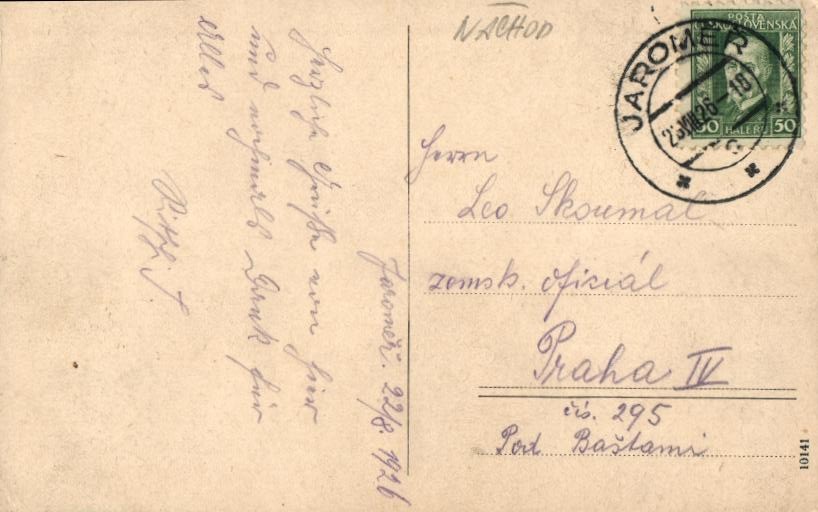 Jaroměř. 22/8. 1926
Herzliche Grüße von hier
und nochmals Dank für
alles
NÁCHOD
POŠTA
ČESKOSLOVENSKÁ
50 HALÉŘŮ 50
JAROMĚŘ
23.VIII.26.-16
Herrn
Leo Skoumal
zemsk. oficiál
Praha IV
čís. 295
Pod Baštami
10141